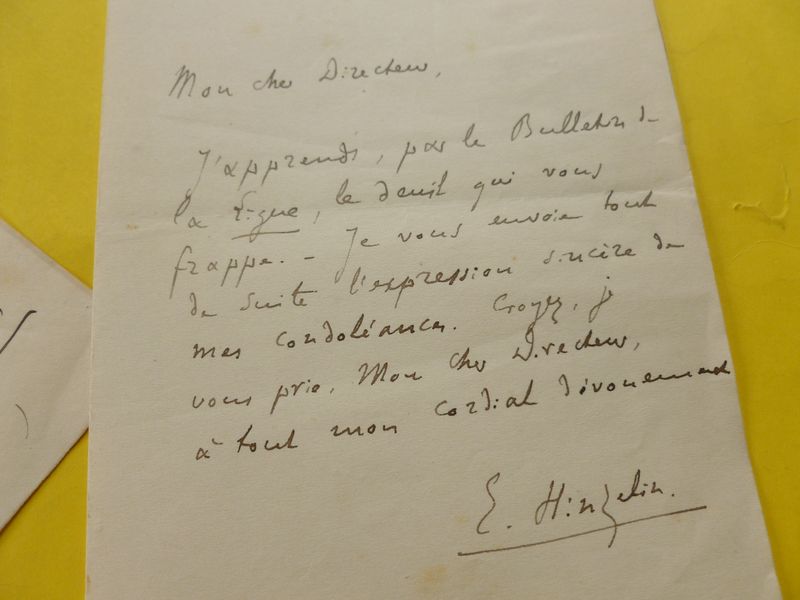 Mon cher Directeur,
J'apprends, par le Bulletin de
la Ligue, le deuil qui vous
frappe. – Je vous envoie tout
de suite l'expression sincère de
mes condoléances. Croyez, je
vous prie, Mon cher Directeur,
à tout mon cordial dévouement
E. Hinzelin.